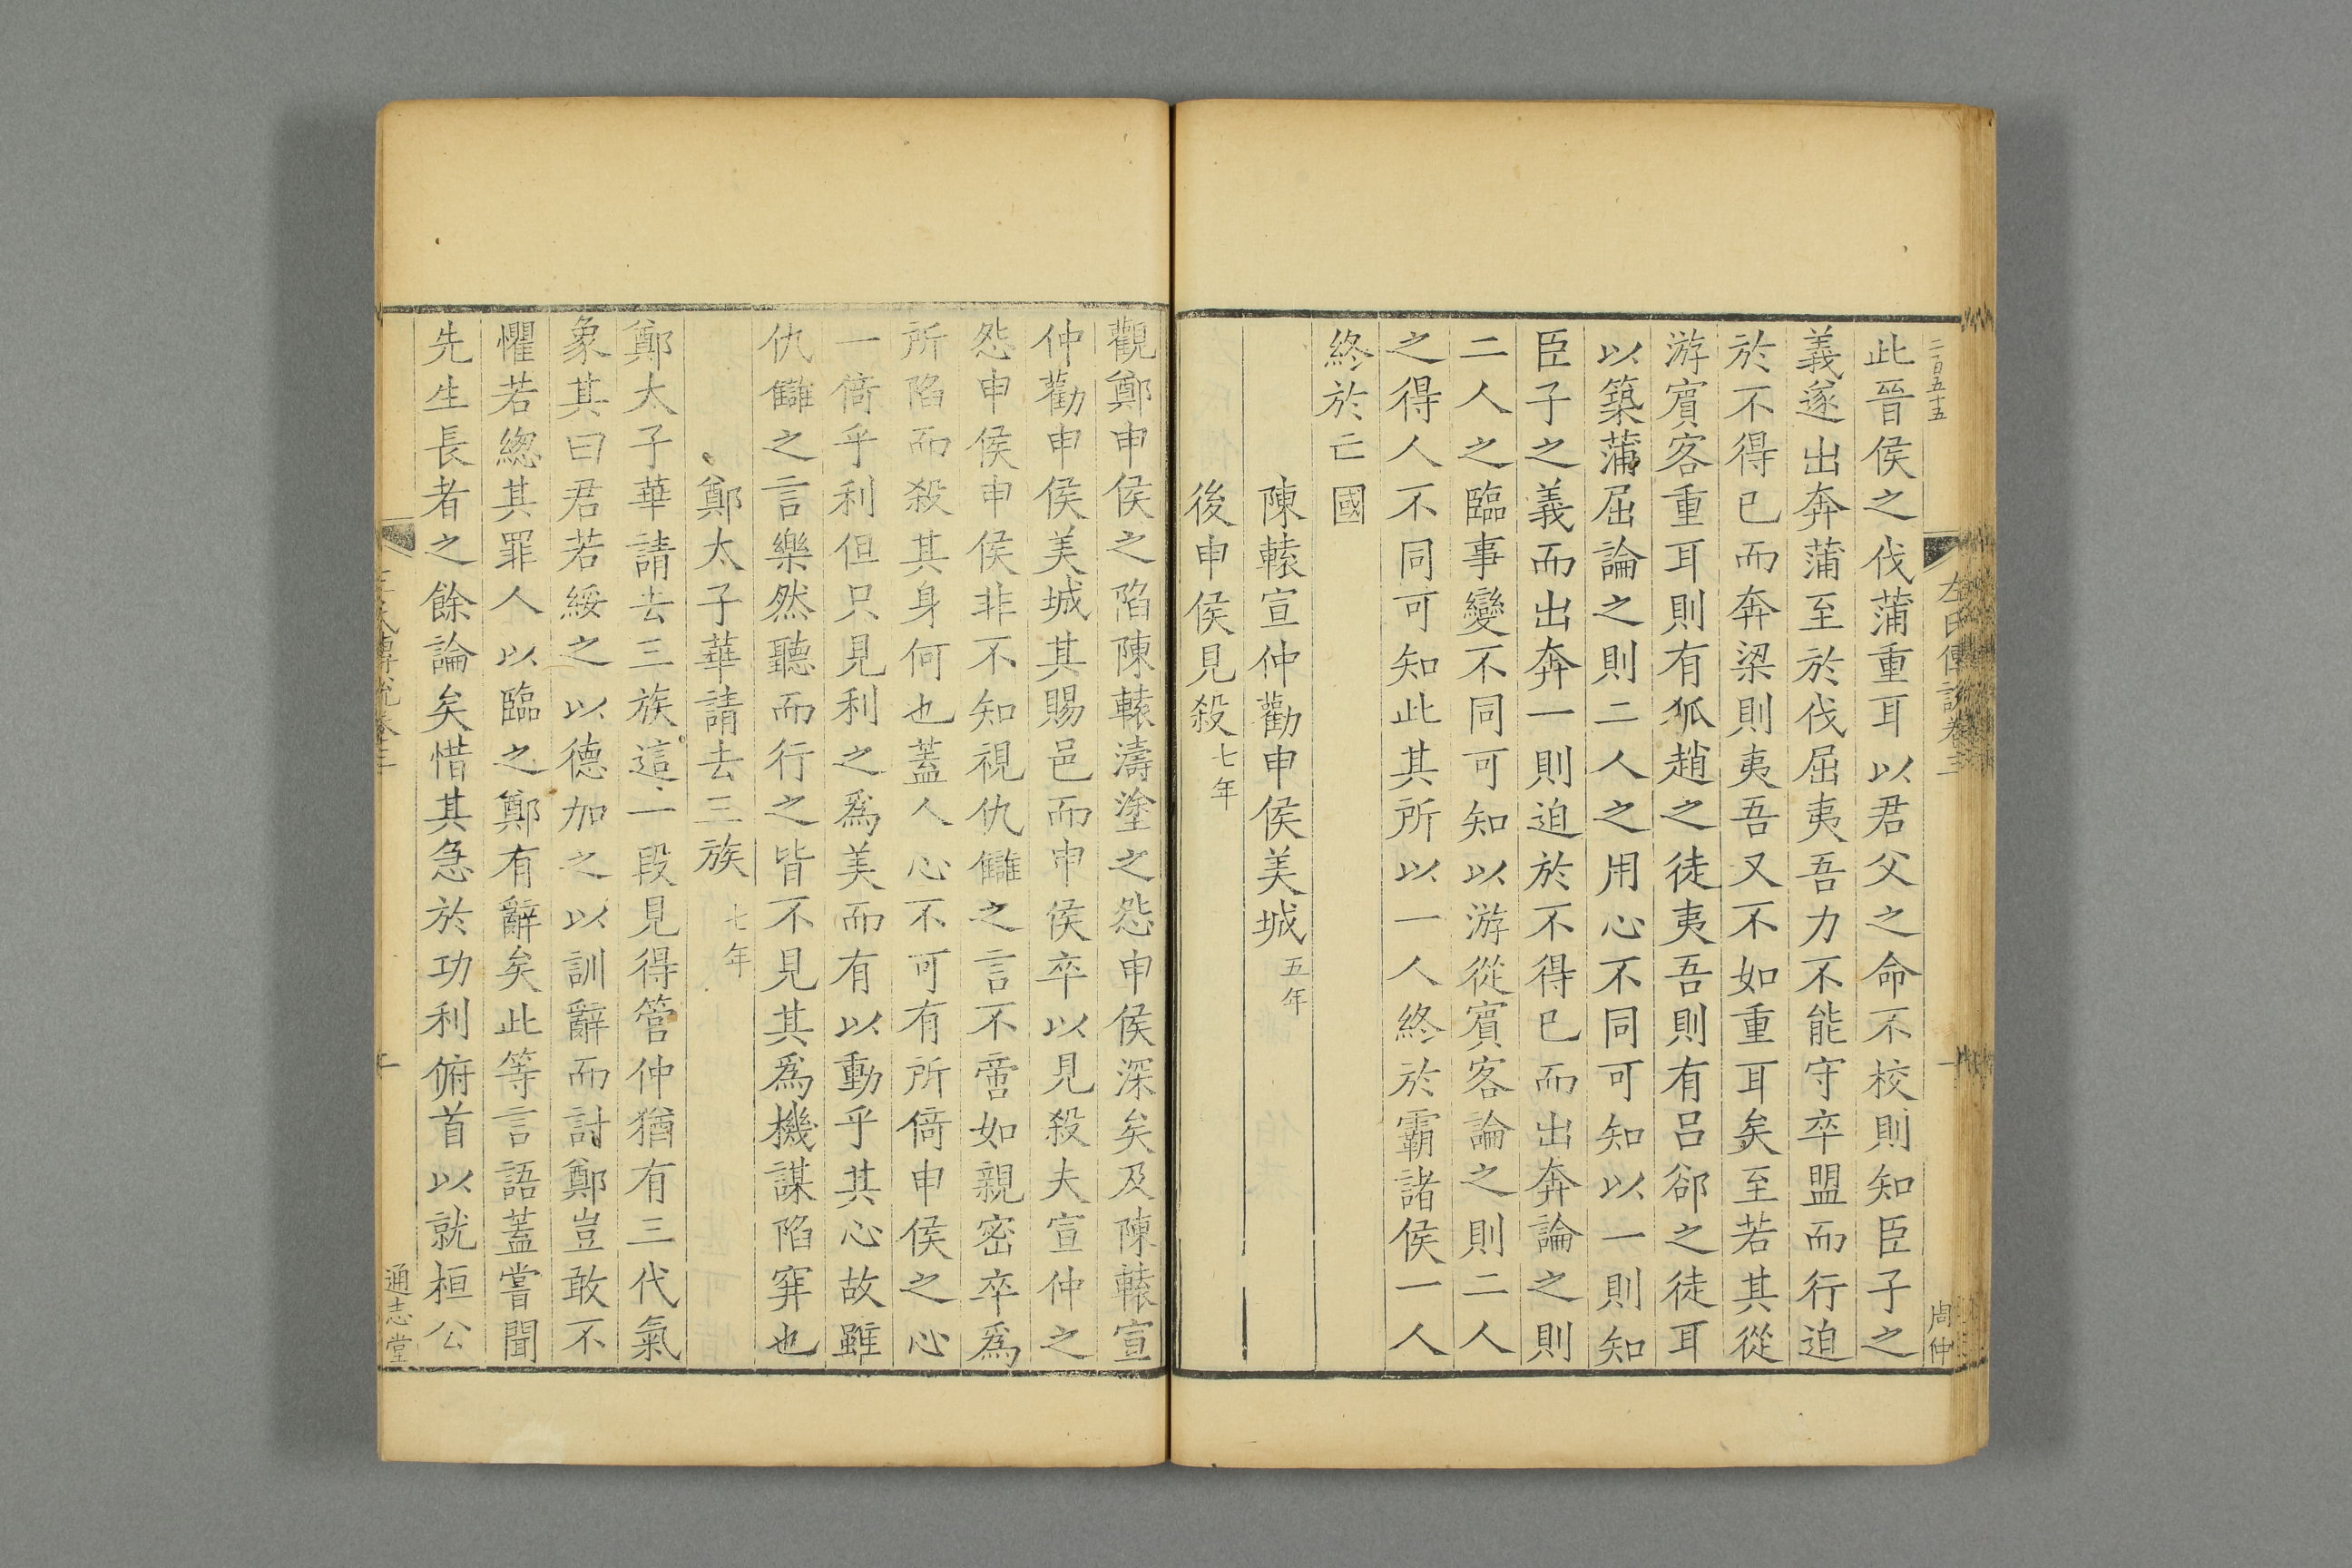 二百五十五
左氏傳說卷三
周仲
此晉侯之伐蒲重耳以君父之命不校則知臣子之
義遂出奔蒲至於伐屈夷吾力不能守卒盟而行迫
於不得已而奔梁則夷吾又不如重耳矣至若其從
游賓客重耳則有狐趙之徒夷吾則有呂郤之徒耳
以築蒲屈論之則二人之用心不同可知以一則知
臣子之義而出奔一則迫於不得已而出奔論之則
二人之臨事變不同可知以游從賓客論之則二人
之得人不同可知此其所以一人終於霸諸侯一人
終於亡國
陳轅宣仲勸申侯美城五年
後申侯見殺七年
觀鄭申侯之陷陳轅濤塗之怨申侯深矣及陳轅宣
仲勸申侯美城其賜邑而申侯卒以見殺夫宣仲之
怨申侯申侯非不知視仇讎之言不啻如親密卒爲
所陷而殺其身何也蓋人心不可有所倚申侯之心
一倚乎利但只見利之爲美而有以動乎其心故雖
仇讎之言樂然聽而行之皆不見其爲機謀陷穽也
鄭太子華請去三族七年
鄭太子華請去三族這一段見得管仲猶有三代氣
象其曰君若綏之以德加之以訓辭而討鄭豈敢不
懼若緫其罪人以臨之鄭有辭矣此等言語蓋嘗聞
先生長者之餘論矣惜其急於功利俯首以就桓公
通志堂